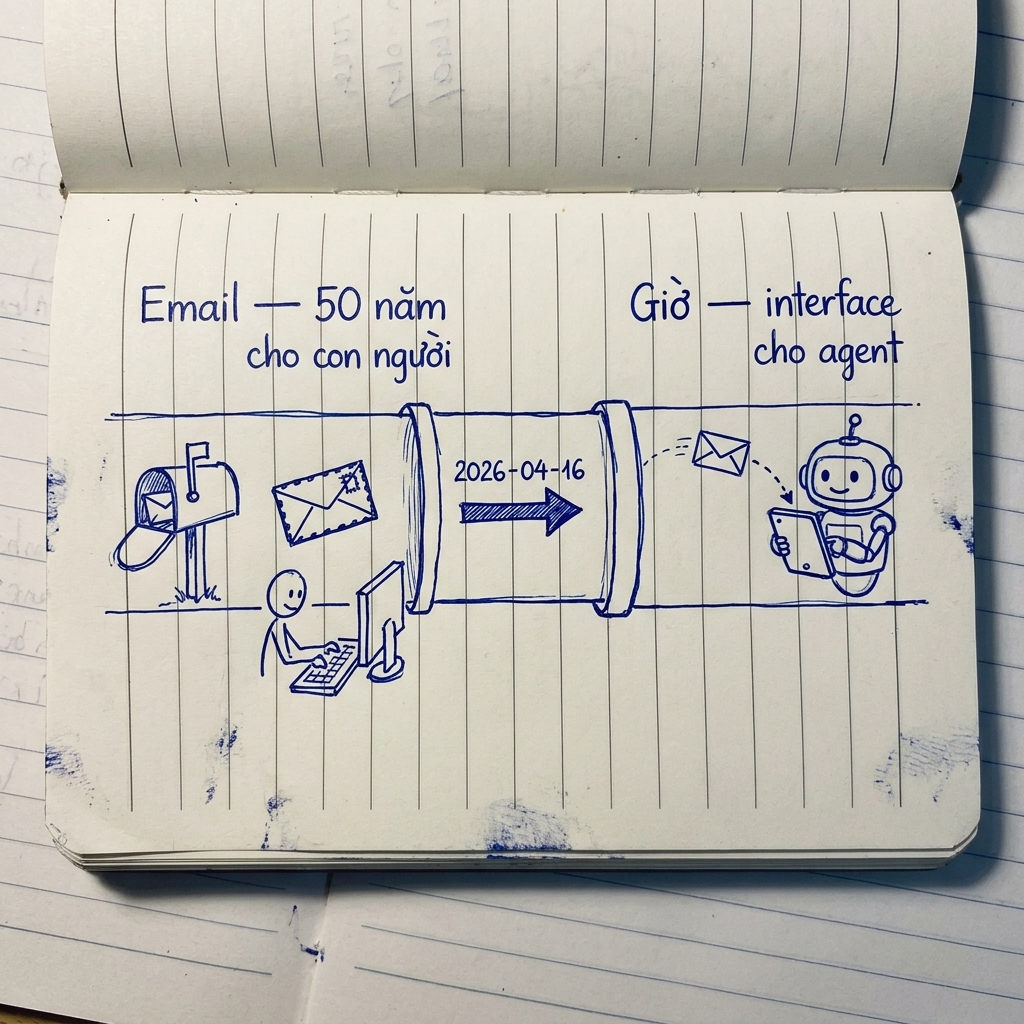 Email — 50 năm
cho con người
Giờ — interface
cho agent
2026-04-16